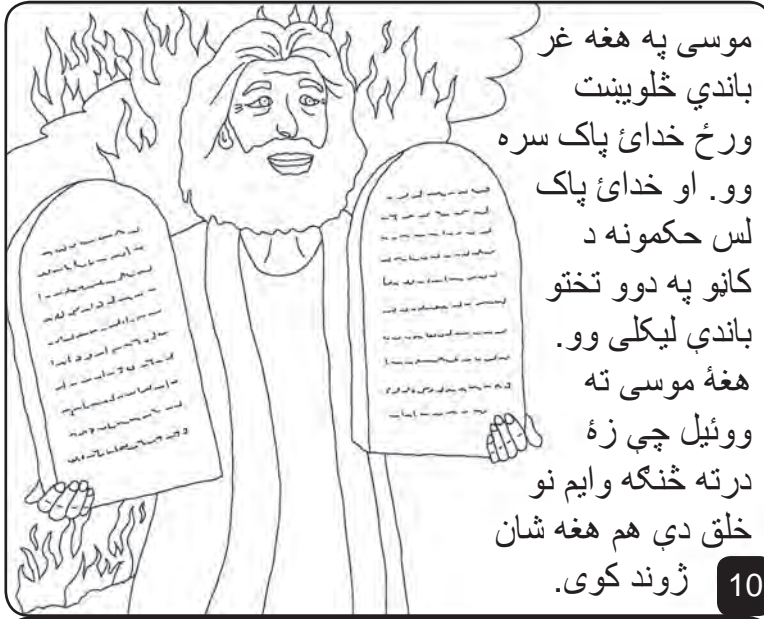 موسی په هغه غر
باندې څلویښت
ورځ خدائ پاک سره
وو. او خدائ پاک
لس حکمونه د
کاڼو په دوو تختو
باندې لیکلی وو.
هغۀ موسی ته
ووئیل چې زۀ
درته څنګه وایم نو
خلق دې هم هغه شان
ژوند کوی.
10